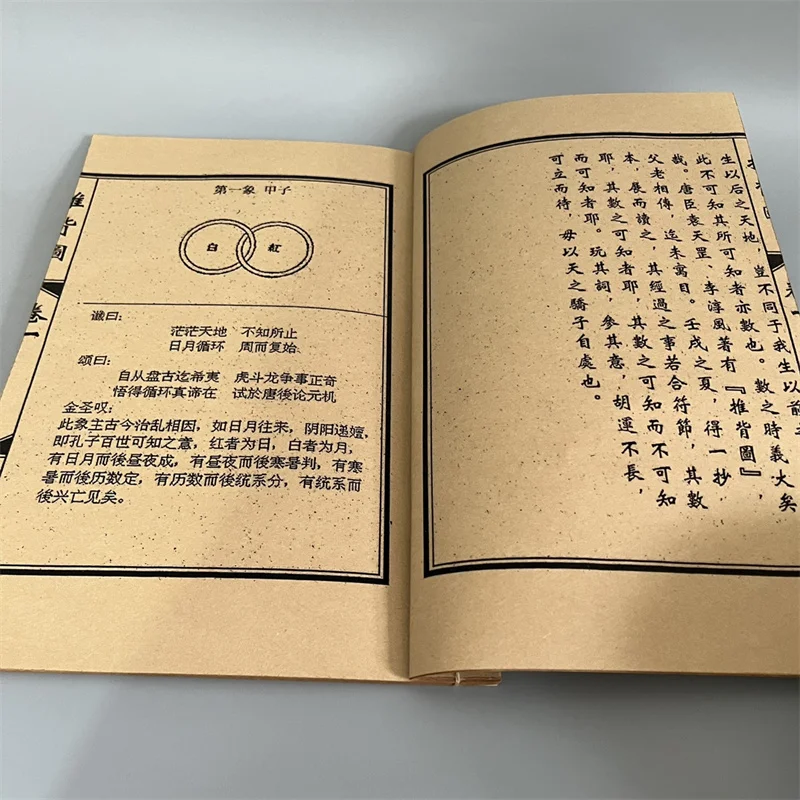 生以后之天地，豈不同于我生以前
此不可知其所可知者亦數也。數之時義大矣
哉。唐臣袁天罡、李淳風著有『推背圖』，
父老相傳，迄未寓目。壬戌之夏，得一抄
本，展而讀之，其經過之事若合符節，其數
耶，其數之可知者耶，其數之可知而不可知
而可知者耶。玩其詞，參其意，胡運不長，
可立而待，毋以天之驕子自處也。
推背圖
卷一
第一象 甲子
白 紅
谶曰：
茫茫天地 不知所止
日月循环 周而复始
颂曰：
自从盘古迄希夷 虎斗龙争事正奇
悟得循环真谛在 试於唐後论元机
金圣叹：
此象主古今治乱相因，如日月往来，阴阳递嬗，
即孔子百世可知之意，红者为日，白者为月，
有日月而後昼夜成，有昼夜而後寒暑判，有寒
暑而後历数定，有历数而後统系分，有统系而
後兴亡见矣。